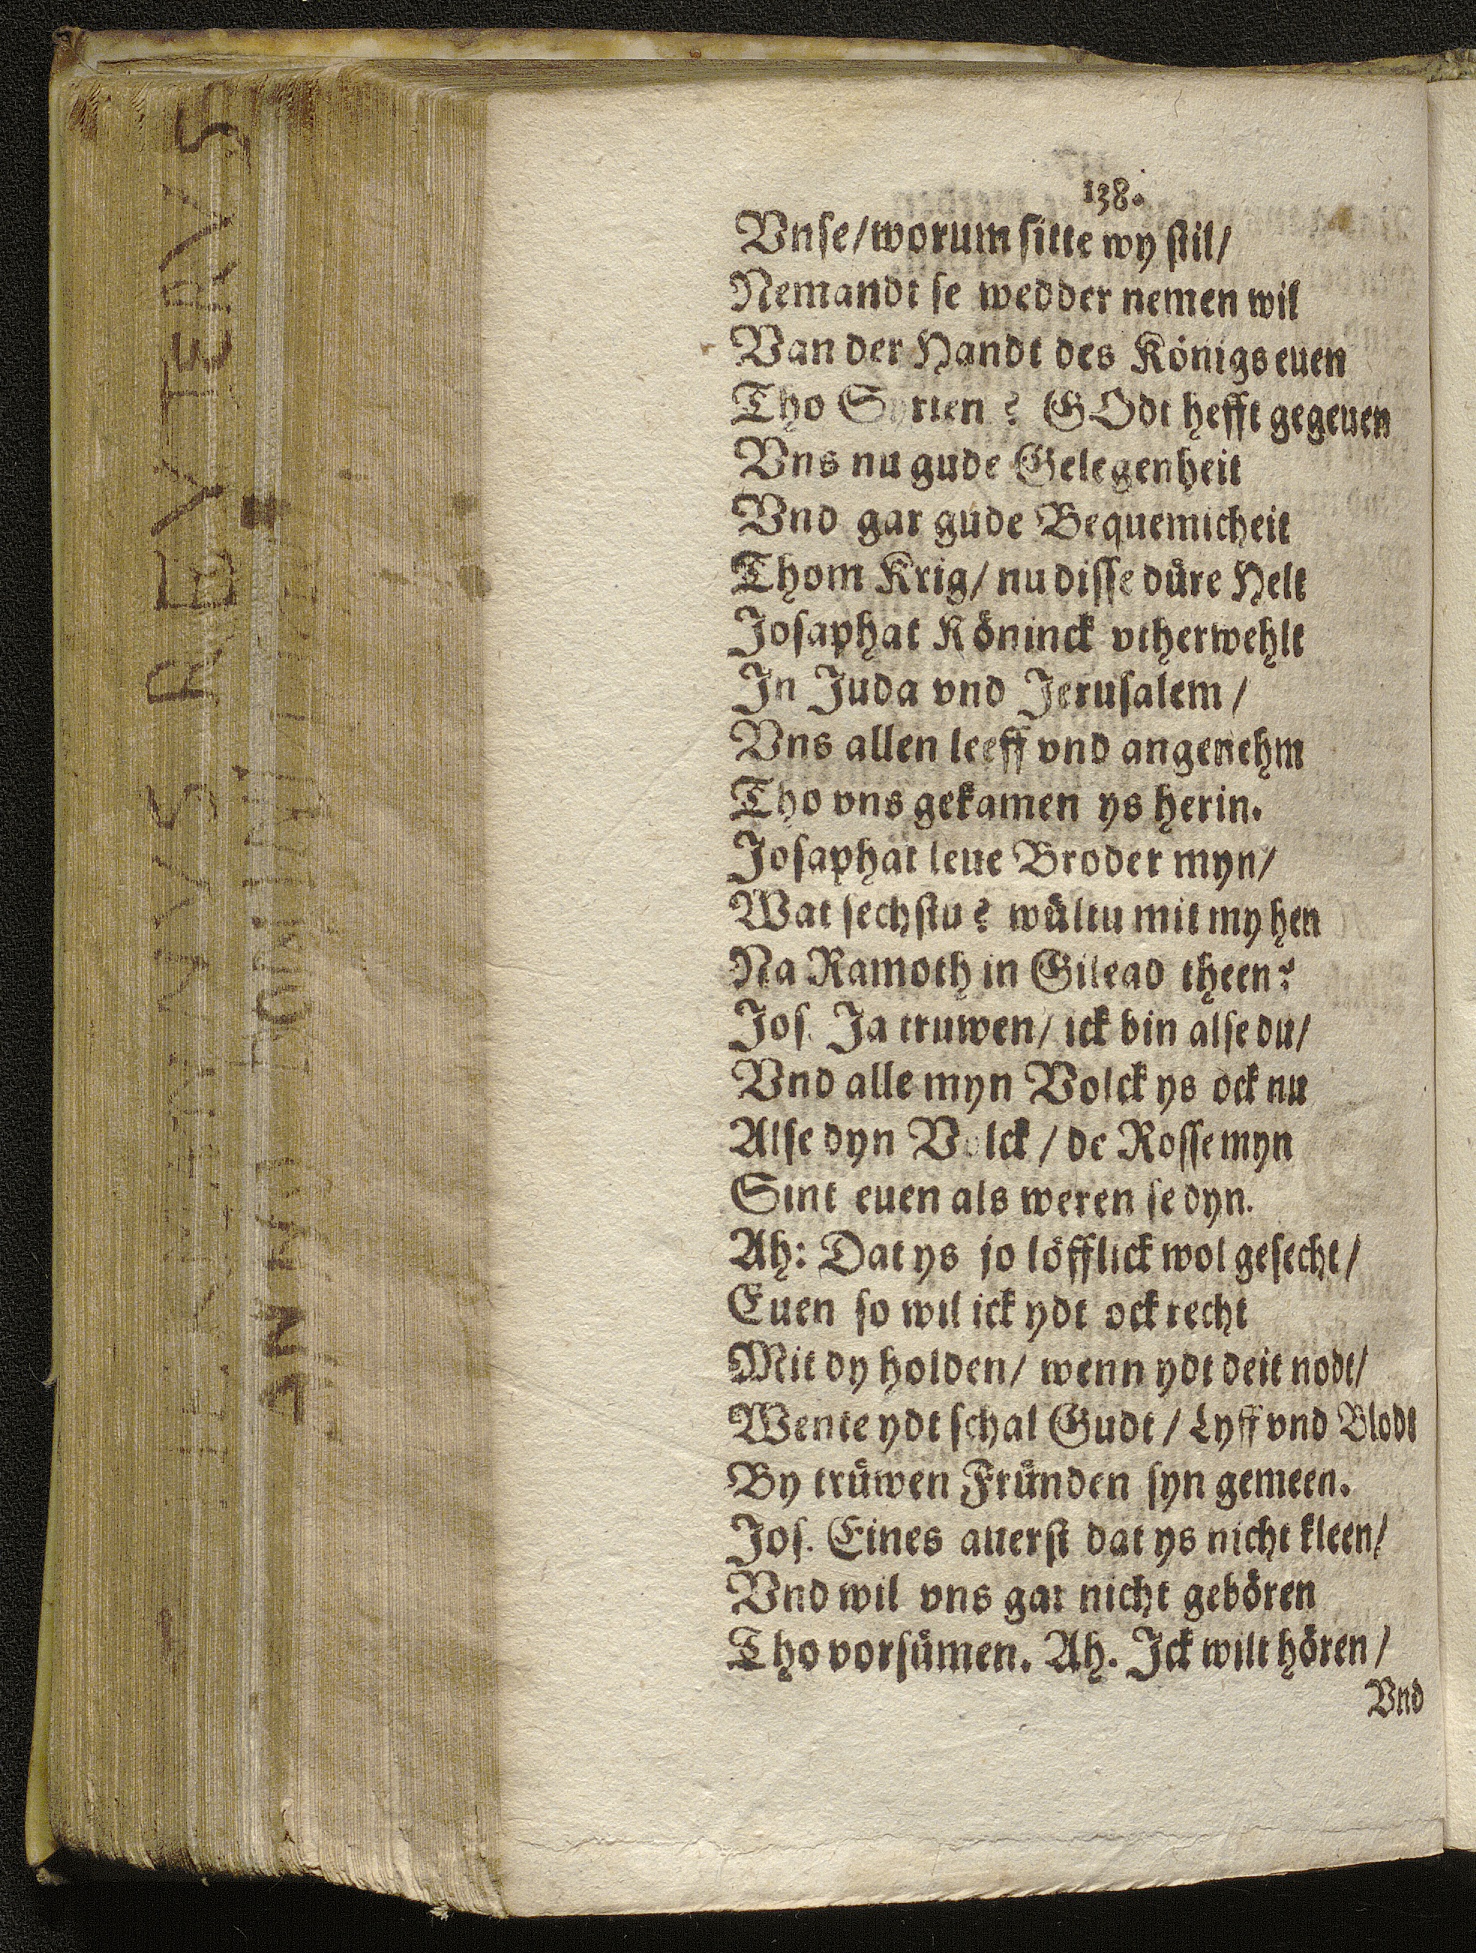 138.
Vnse/worum sitte wy stil/
Nemandt se wedder nemen wil
Van der Handt des Königs euen
Tho Syrien? GOdt hefft gegeuen
Vns nu gude Gelegenheit
Vnd gar gude Bequemicheit
Thom Krig/ nu disse düre Helt
Josaphat Köninck vtherwehlt
In Juda vnd Jerusalem/
Vns allen leeff vnd angenehm
Tho vns gekamen ys herin.
Josaphat leue Broder myn/
Wat sechstu? wültu mit my hen
Na Ramoth in Gilead theen?
Jos. Ja truwen/ ick bin alse du/
Vnd alle myn Volck ys ock nu
Alse dyn Volck/ de Rosse myn
Sint euen als weren se dyn.
Ah: Dat ys jo löfflick wol gesecht/
Euen so wil ick ydt ock recht
Mit dy holden/ wenn ydt deit nodt/
Wente ydt schal Gudt/ Lyff vnd Blodt
By trüwen Fründen syn gemeen.
Jos. Eines auerst dat ys nicht kleen/
Vnd wil vns gar nicht gebören
Tho vorsümen. Ah. Ick wilt hören/
Vnd
REVTERVS